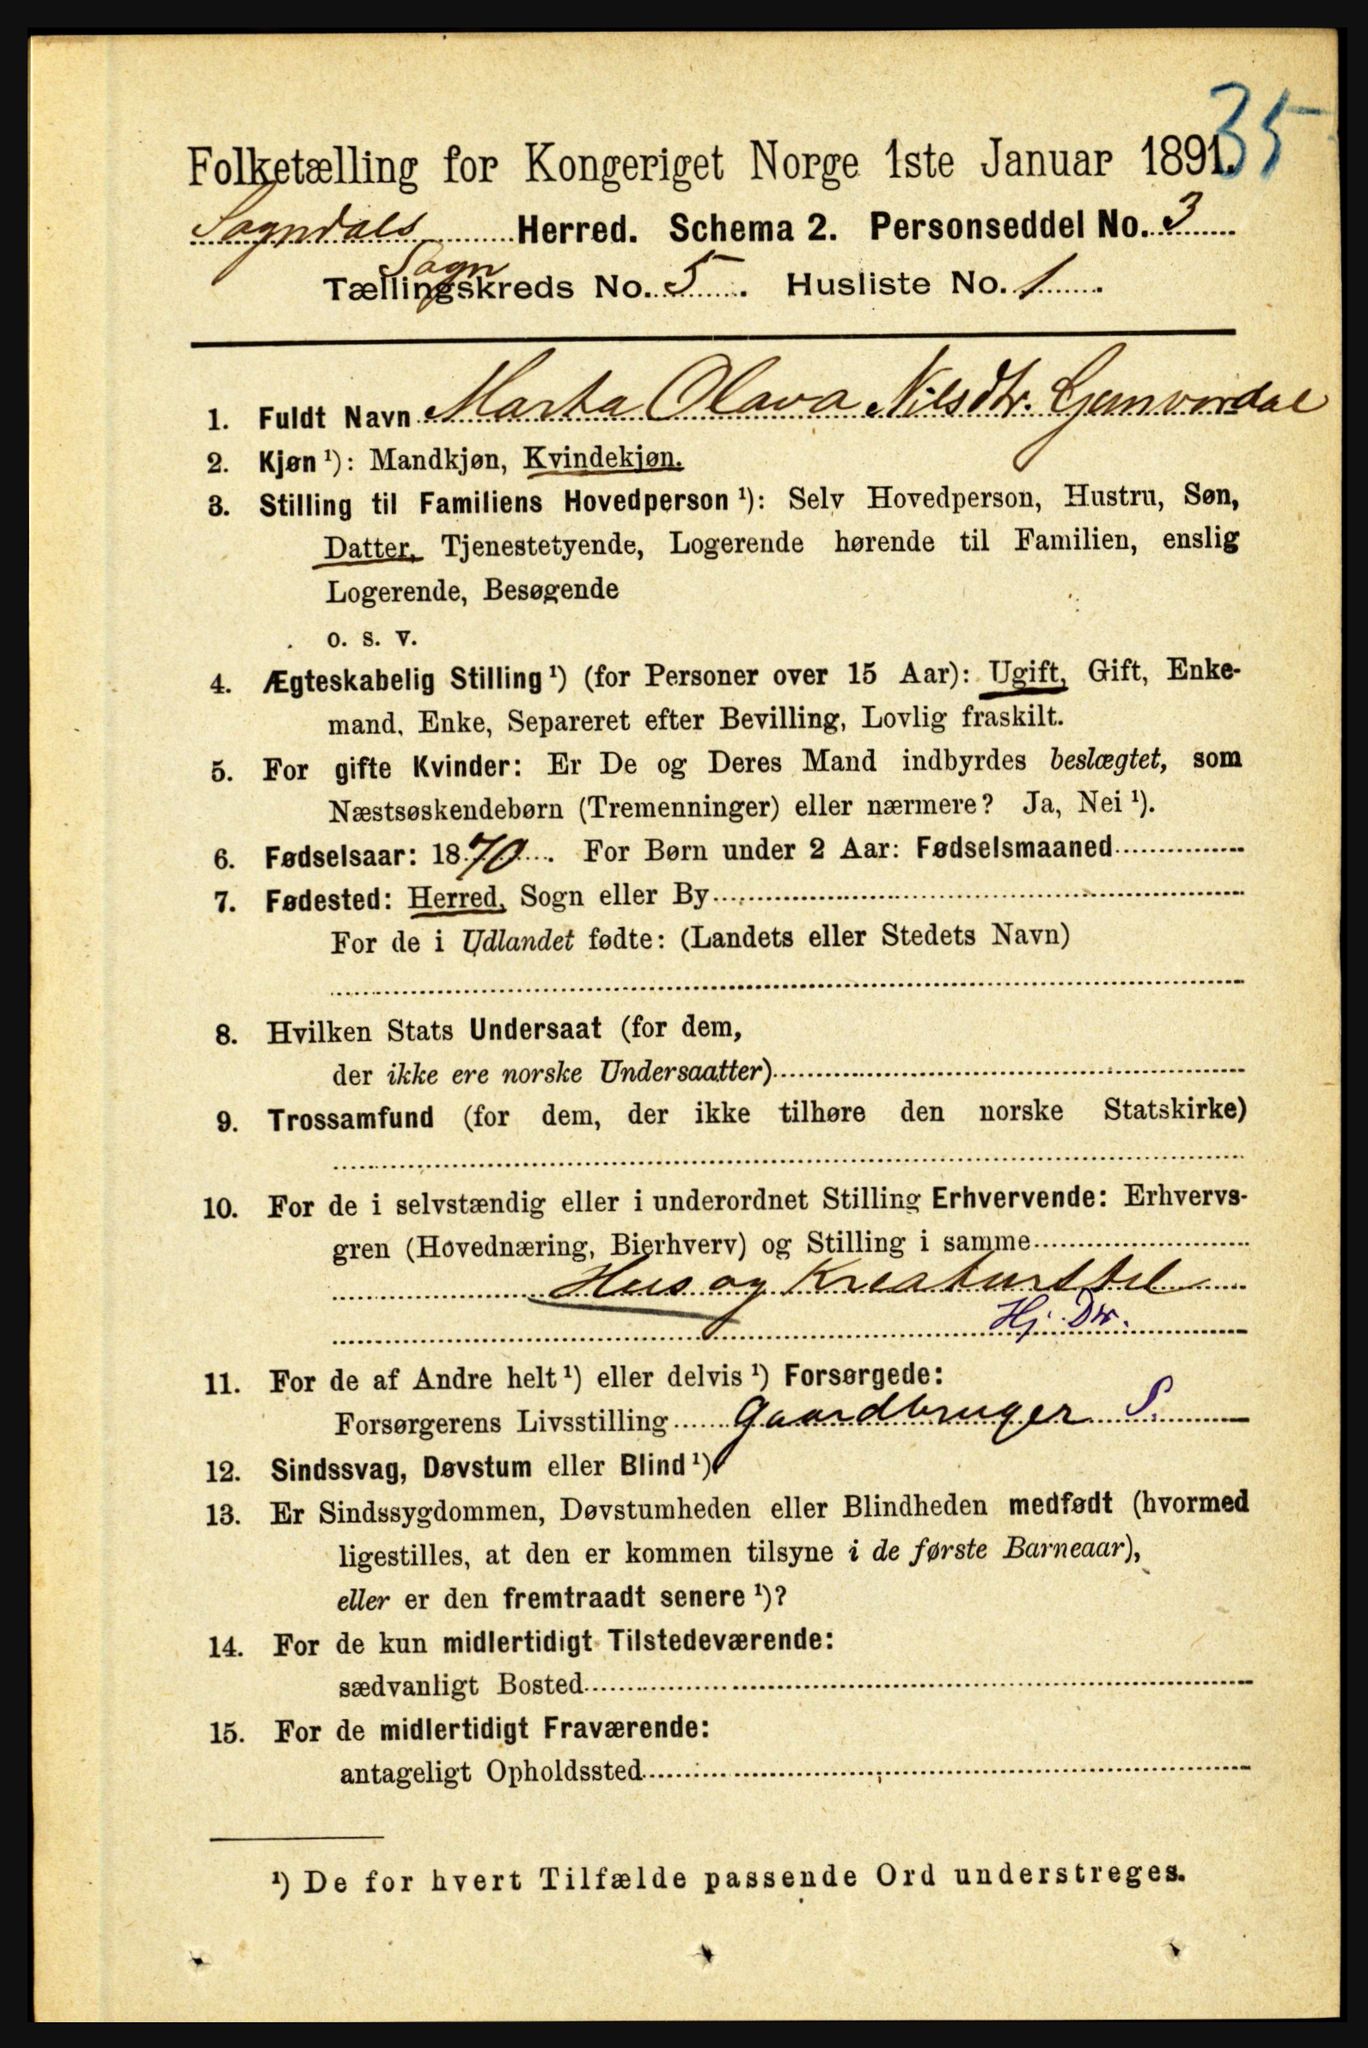 35
Folketælling for Kongeriget Norge 1ste Januar 1891.
Sogndals Herred. Schema 2. Personseddel No. 3
Sogn
Tællingskreds No. 5. Husliste No. 1.
1. Fuldt Navn Marta Olava Nilsdtr.
2. Kjøn ¹): Mandkjøn, Kvindekjøn.
3. Stilling til Familiens Hovedperson ¹): Selv Hovedperson, Hustru, Søn,
Datter, Tjenestetyende, Logerende hørende til Familien, enslig
Logerende, Besøgende
o. s. v.
4. Ægteskabelig Stilling ¹) (for Personer over 15 Aar): Ugift, Gift, Enke-
mand, Enke, Separeret efter Bevilling, Lovlig fraskilt.
5. For gifte Kvinder: Er De og Deres Mand indbyrdes beslægtet, som
Næstsøskendebørn (Tremenninger) eller nærmere? Ja, Nei ¹).
6. Fødselsaar: 1870. For Børn under 2 Aar: Fødselsmaaned
7. Fødested: Herred, Sogn eller By
For de i Udlandet fødte: (Landets eller Stedets Navn)
8. Hvilken Stats Undersaat (for dem,
der ikke ere norske Undersaatter)
9. Trossamfund (for dem, der ikke tilhøre den norske Statskirke)
10. For de i selvstændig eller i underordnet Stilling Erhvervende: Erhvervs-
gren (Hovednæring, Bierhverv) og Stilling i samme
Hus og Kreaturstel
Hj. Dtr.
11. For de af Andre helt ¹) eller delvis ¹) Forsørgede:
Forsørgerens Livsstilling Gaardbruger S.
12. Sindssvag, Døvstum eller Blind ¹)
13. Er Sindssygdommen, Døvstumheden eller Blindheden medfødt (hvormed
ligestilles, at den er kommen tilsyne i de første Barneaar),
eller er den fremtraadt senere ¹)?
14. For de kun midlertidigt Tilstedeværende:
sædvanligt Bosted
15. For de midlertidigt Fraværende:
antageligt Opholdssted
¹) De for hvert Tilfælde passende Ord understreges.